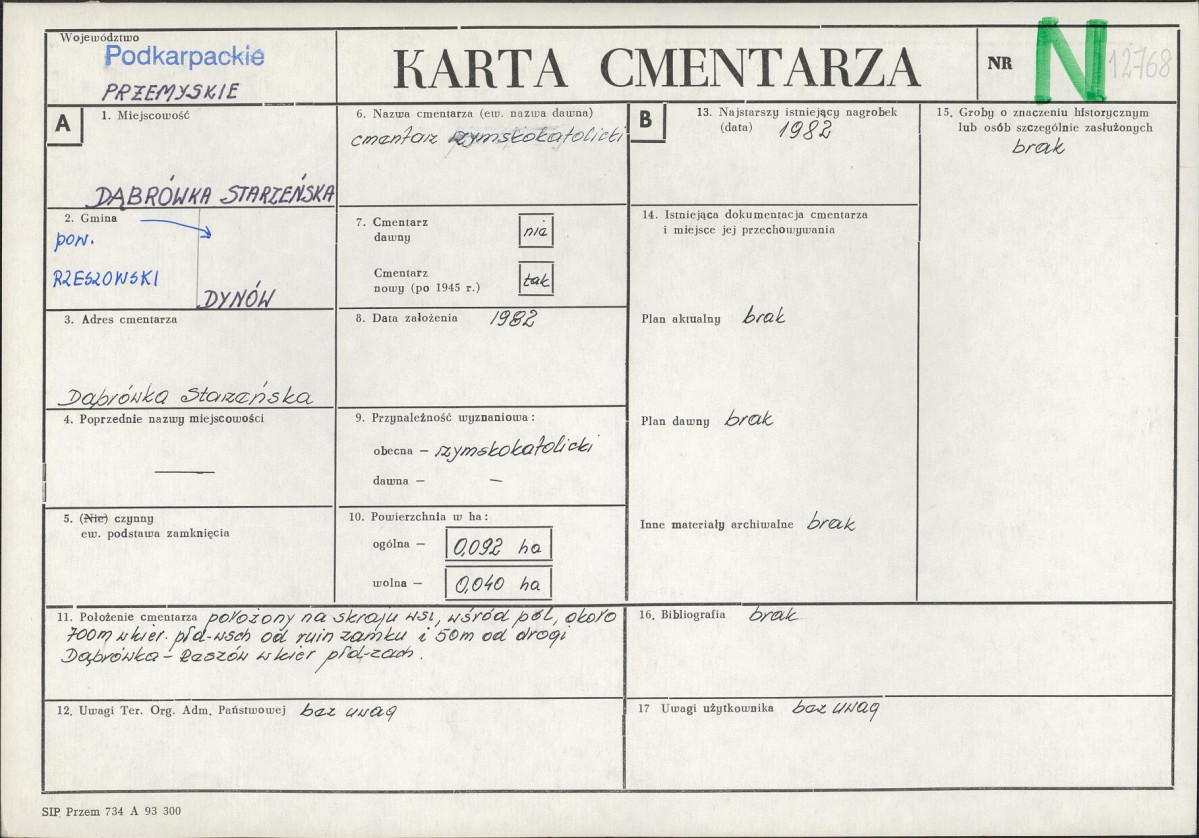 Województwo
Podkarpackie
PRZEMYSKIE
KARTA CMENTARZA
NR
N
12768
A
1. Miejscowość
DĄBRÓWKA STARZEŃSKA
2. Gmina
pow.
RZESZOWSKI
DYNÓW
3. Adres cmentarza
Dąbrówka Starzeńska
4. Poprzednie nazwy miejscowości
—
5. (Nie) czynny
ew. podstawa zamknięcia
6. Nazwa cmentarza (ew. nazwa dawna)
cmentarz rzymskokatolicki
7. Cmentarz
dawny
nie
Cmentarz
nowy (po 1945 r.)
tak
8. Data założenia 1982
9. Przynależność wyznaniowa:
obecna – rzymskokatolicki
dawna – –
10. Powierzchnia w ha:
ogólna – 0,092 ha
wolna – 0,040 ha
11. Położenie cmentarza położony na skraju wsi, wśród pól, około
700m w kier. płd-wsch od ruin zamku i 50m od drogi
Dąbrówka – w kier płd-zach.
12. Uwagi Ter. Org. Adm. Państwowej bez uwag
B
13. Najstarszy istniejący nagrobek
(data) 1982
14. Istniejąca dokumentacja cmentarza
i miejsce jej przechowywania
Plan aktualny brak
Plan dawny brak
Inne materiały archiwalne brak
15. Groby o znaczeniu historycznym
lub osób szczególnie zasłużonych
brak
16. Bibliografia brak
17 Uwagi użytkownika bez uwag
SIP. Przem 734 A 93 300